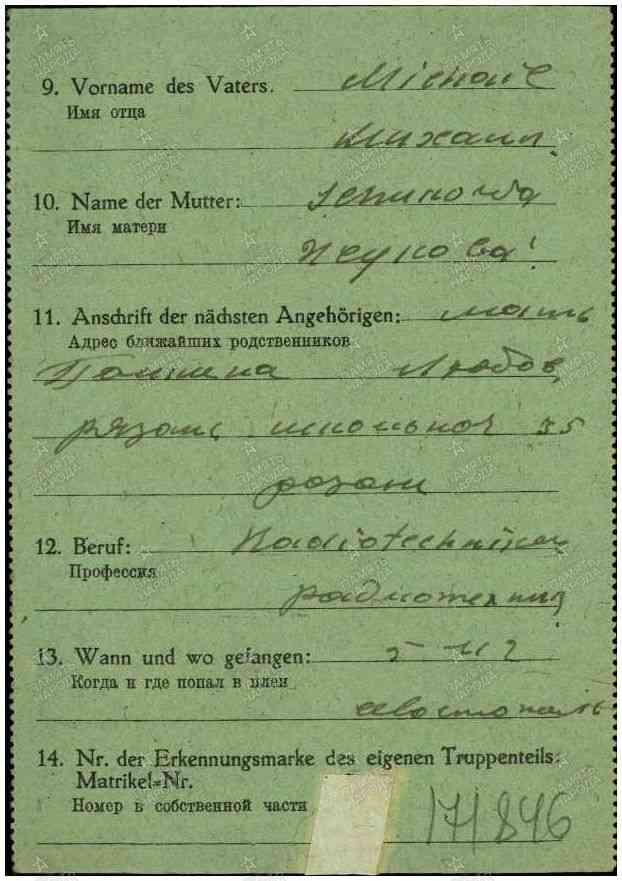 9. Vorname des Vaters. Michail
Имя отца
Михаил.
10. Name der Mutter:
Имя матери
11. Anschrift der nächsten Angehörigen: мать
Адрес ближайших родственников
Любов,
рязань 55
рязань
12. Beruf: Radiotechniker
Профессия
радиотехник
13. Wann und wo gefangen:
Когда и где попал в плен
14. Nr. der Erkennungsmarke des eigenen Truppenteils:
Matrikel-Nr.
Номер в собственной части
171846